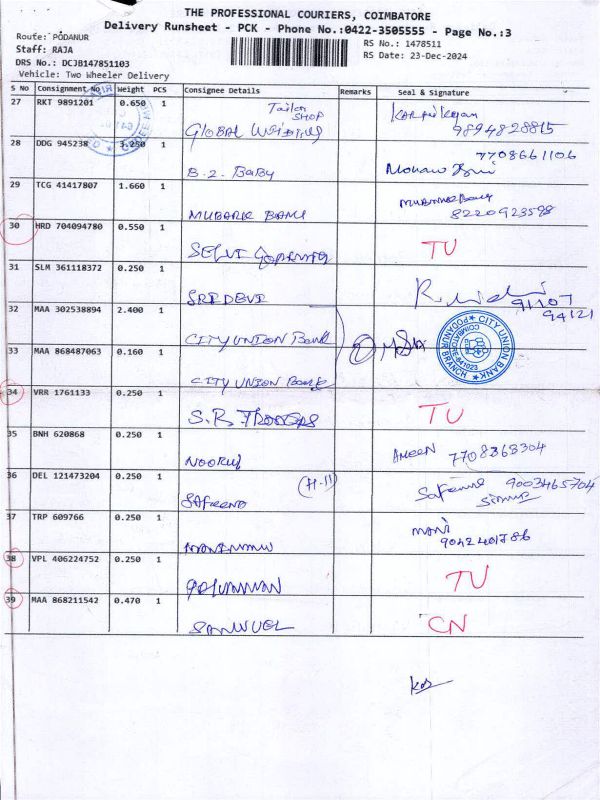 THE PROFESSIONAL COURIERS, COIMBATORE
Delivery Runsheet - PCK - Phone No.:0422-3505555 - Page No.:3
Route: PODANUR
RS No.: 1478511
Staff: RAJA
RS Date: 23-Dec-2024
DRS No.: DCJB147851103
Vehicle: Two Wheeler Delivery
S No Consignment No Weight PCS Consignee Details Remarks Seal & Signature
27 RKT 9891201 0.650 1 Tailor SHOP
GLOBAL 9894828815
28 DDG 945238 3.250 1 7708661106
B.Z. BABY
29 TCG 41417807 1.660 1
MUBARK BANU 8220923598
30 HRD 704094780 0.550 1 TU
SELVI
31 SLM 361118372 0.250 1
SRIDEVI 91107
94121
32 MAA 302538894 2.400 1
CITY UNION Bank
CITY UNION BANK
PODANUR BRANCH
COIMBATORE-641023
33 MAA 868487063 0.160 1
CITY UNION Bank
34 VRR 1761133 0.250 1
S.R. TU
35 BNH 620868 0.250 1 AMEEN 7708363304
NOORUL
36 DEL 121473204 0.250 1 (H-11) 9003465704
SAFEENA
37 TRP 609766 0.250 1 MANI
9042401786
38 VPL 406224752 0.250 1 TU
39 MAA 868211542 0.470 1 CN
SAMUEL